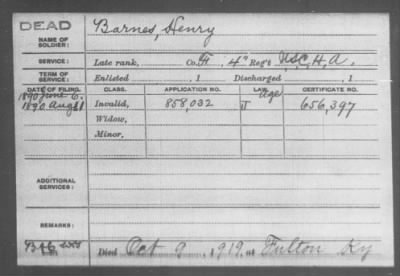 DEAD
NAME OF SOLDIER: Barnes, Henry
SERVICE: Late rank, Co. F, 4" Reg't U.S.C.H.A.
TERM OF SERVICE: Enlisted , 1 Discharged , 1
DATE OF FILING. CLASS. APPLICATION NO. LAW. CERTIFICATE NO.
1890 June 6. Age
1890 Aug 1 Invalid, 858,032 656,397
Widow,
Minor,
ADDITIONAL SERVICES:
REMARKS:
Died Oct 9, 1919, at Fulton Ky